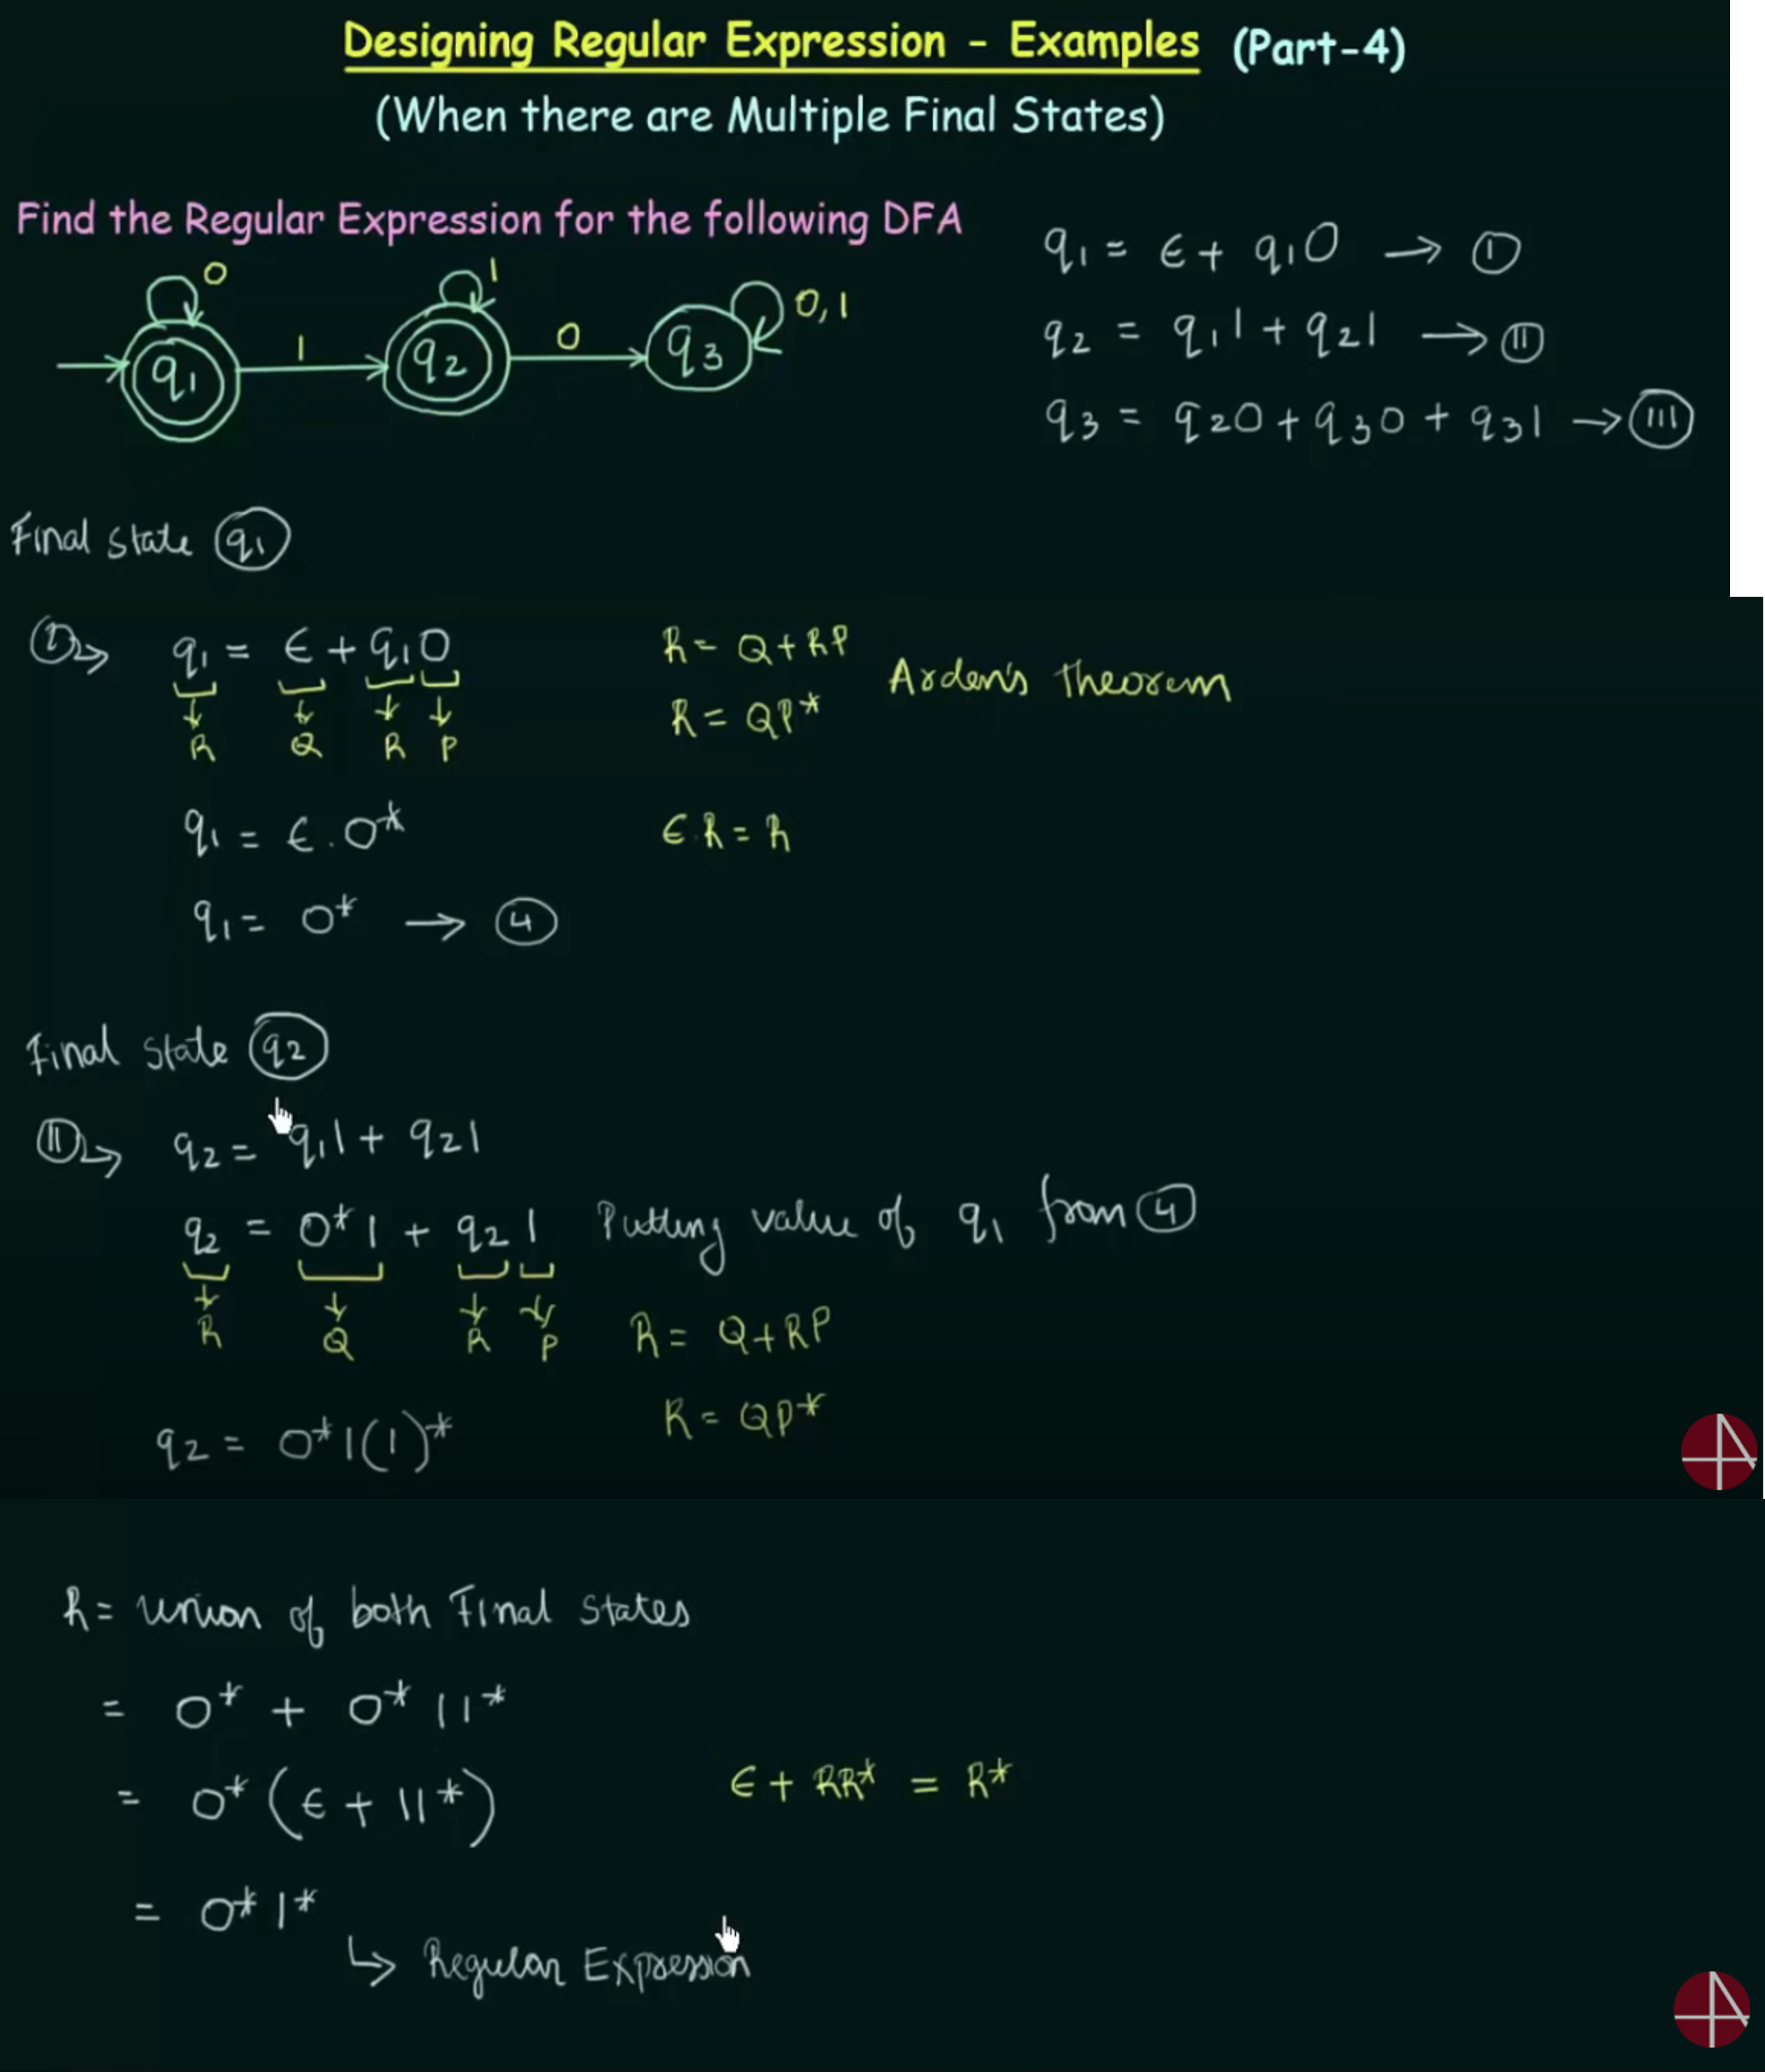 Designing Regular Expression - Examples (Part-4)
(When there are Multiple Final States)
Find the Regular Expression for the following DFA
0
1
0,1
1
0
q1
q2
q3
q1 = ϵ + q10 → I
q2 = q11 + q21 → II
q3 = q20 + q30 + q31 → III
Final state q1
I → q1 = ϵ + q10
R Q R P
R = Q + RP
R = QP*
Arden's Theorem
q1 = ϵ . 0*
ϵ.R = R
q1 = 0* → 4
Final state q2
II → q2 = q11 + q21
q2 = 0*1 + q21 Putting value of q1 from 4
R Q R P
R = Q+RP
R = QP*
q2 = 0*1(1)*
R = union of both Final states
= 0* + 0*11*
= 0*(ϵ + 11*)
ϵ + RR* = R*
= 0*1*
↳ Regular Expression